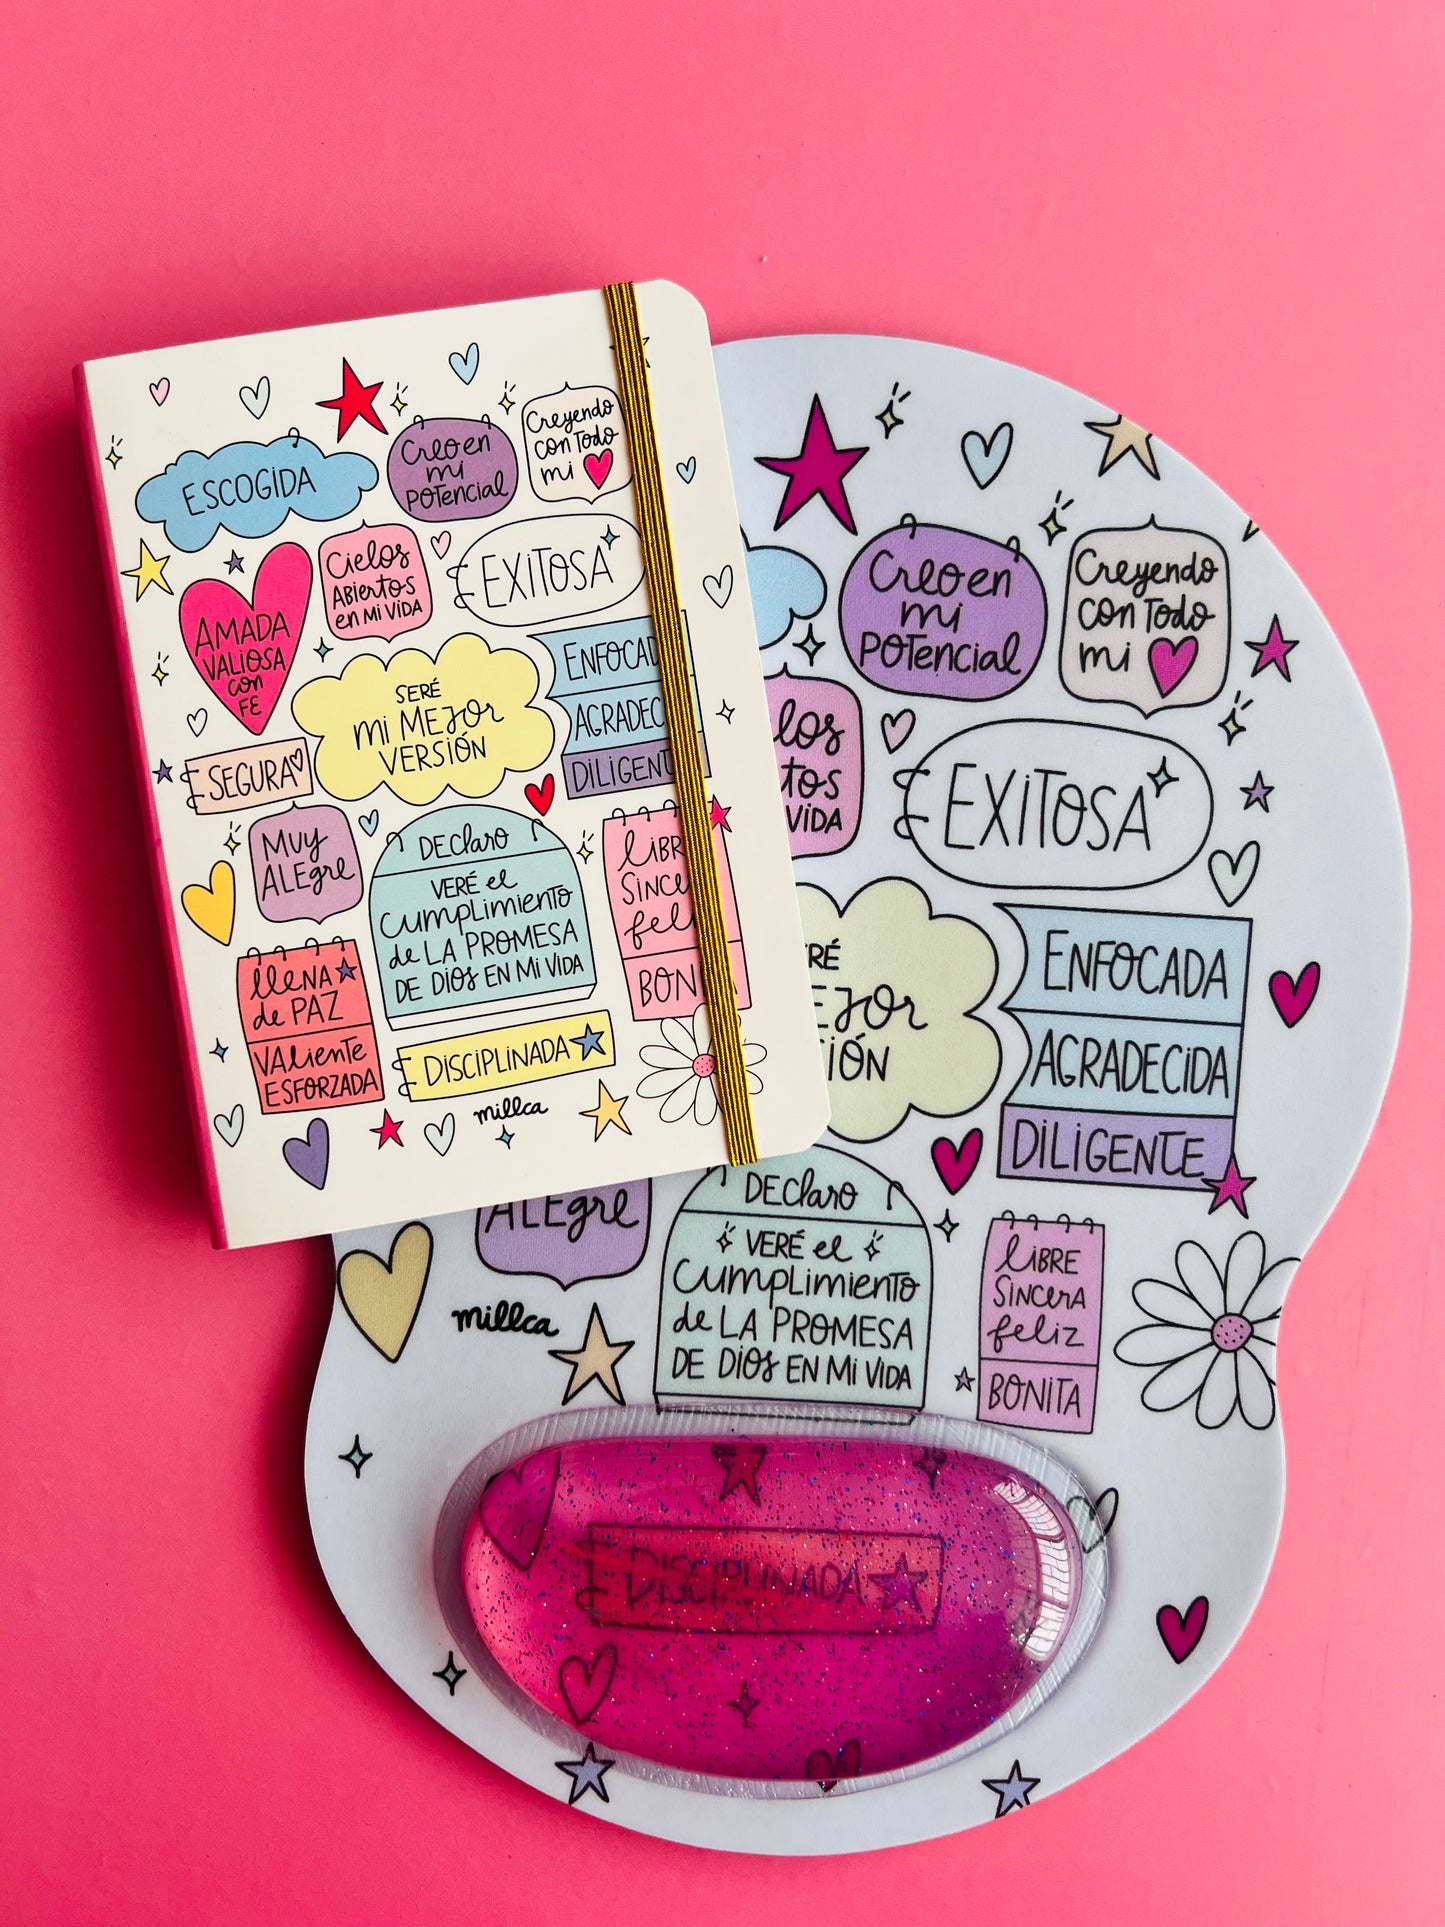 ESCOGIDA
Creo en
mi
POTencial
Creyendo
con Todo
mi
AMADA
VALIOSA
con
FE
Cielos
ABiertos
en Mi ViDA
EXiTOSA
SERÉ
mi MEJor
VERSIÓN
ENFOCAD
AGRADEC
DiLiGENT
SEGURA
Muy
ALEgre
DEClaro
VERÉ el
Cumplimiento
de LA PROMESA
DE DioS EN Mi ViDA
LiBR
SiNCe
fel
BON
llENA
de PAZ
VALiente
ESFORZADA
DiSCiPLiNADA
millca
Creo en
mi
POTencial
Creyendo
con Todo
mi
los
tos
ViDA
EXiTOSA
RÉ
EJor
iÓN
ENFOCADA
AGRADECiDA
DiLiGENTE
ALEgre
millca
DEClaro
VERÉ el
Cumplimiento
de LA PROMESA
DE DioS EN Mi ViDA
LiBRE
SiNCerA
feliz
BONiTA
DISCIPLINADA